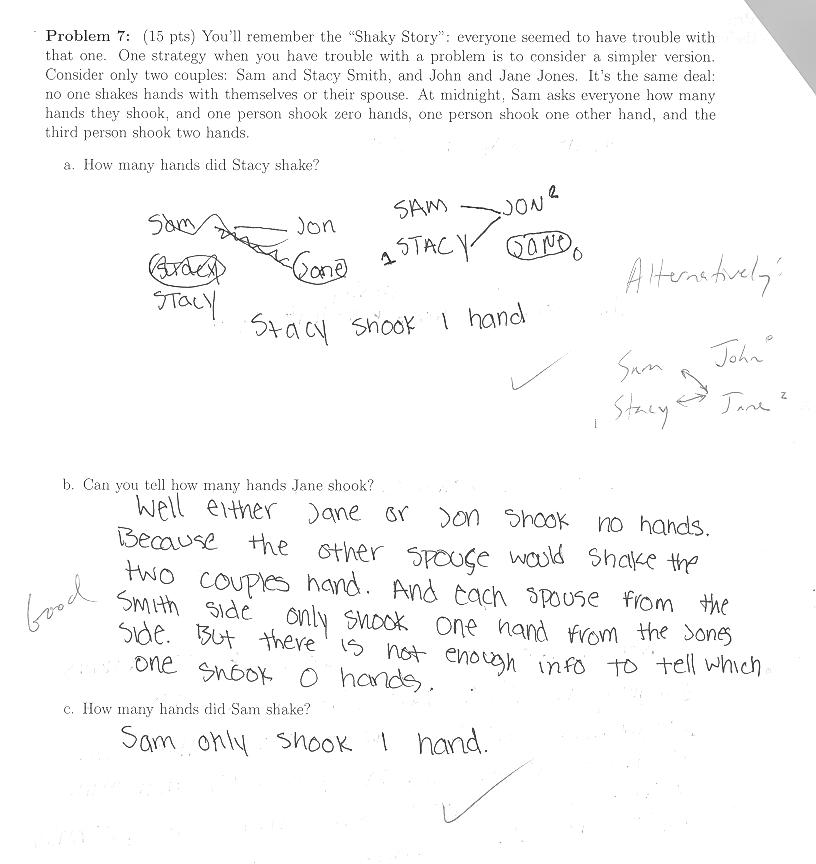 Problem 7: (15 pts) You'll remember the "Shaky Story": everyone seemed to have trouble with
that one. One strategy when you have trouble with a problem is to consider a simpler version.
Consider only two couples: Sam and Stacy Smith, and John and Jane Jones. It's the same deal:
no one shakes hands with themselves or their spouse. At midnight, Sam asks everyone how many
hands they shook, and one person shook zero hands, one person shook one other hand, and the
third person shook two hands.
a. How many hands did Stacy shake?
Sam Jon
Jane
STacy
SAM JON 2
1 STACY JANE 0
Stacy shook 1 hand
Alternatively:
Sam John 0
1 Stacy Jane 2
b. Can you tell how many hands Jane shook?
Well either Jane or Jon shook no hands.
Because the other spouse would shake the
two couples hand. And each spouse from the
Good
Smith side only shook one hand from the Jones
side. But there is not enough info to tell which
one shook 0 hands.
c. How many hands did Sam shake?
Sam only shook 1 hand.